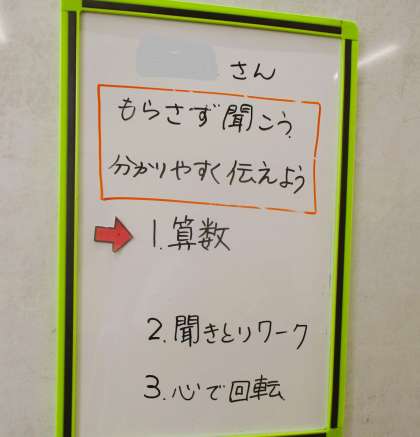 さん
もらさず聞こう
分かりやすく伝えよう
1.算数
2.聞きとりワーク
3.心で回転